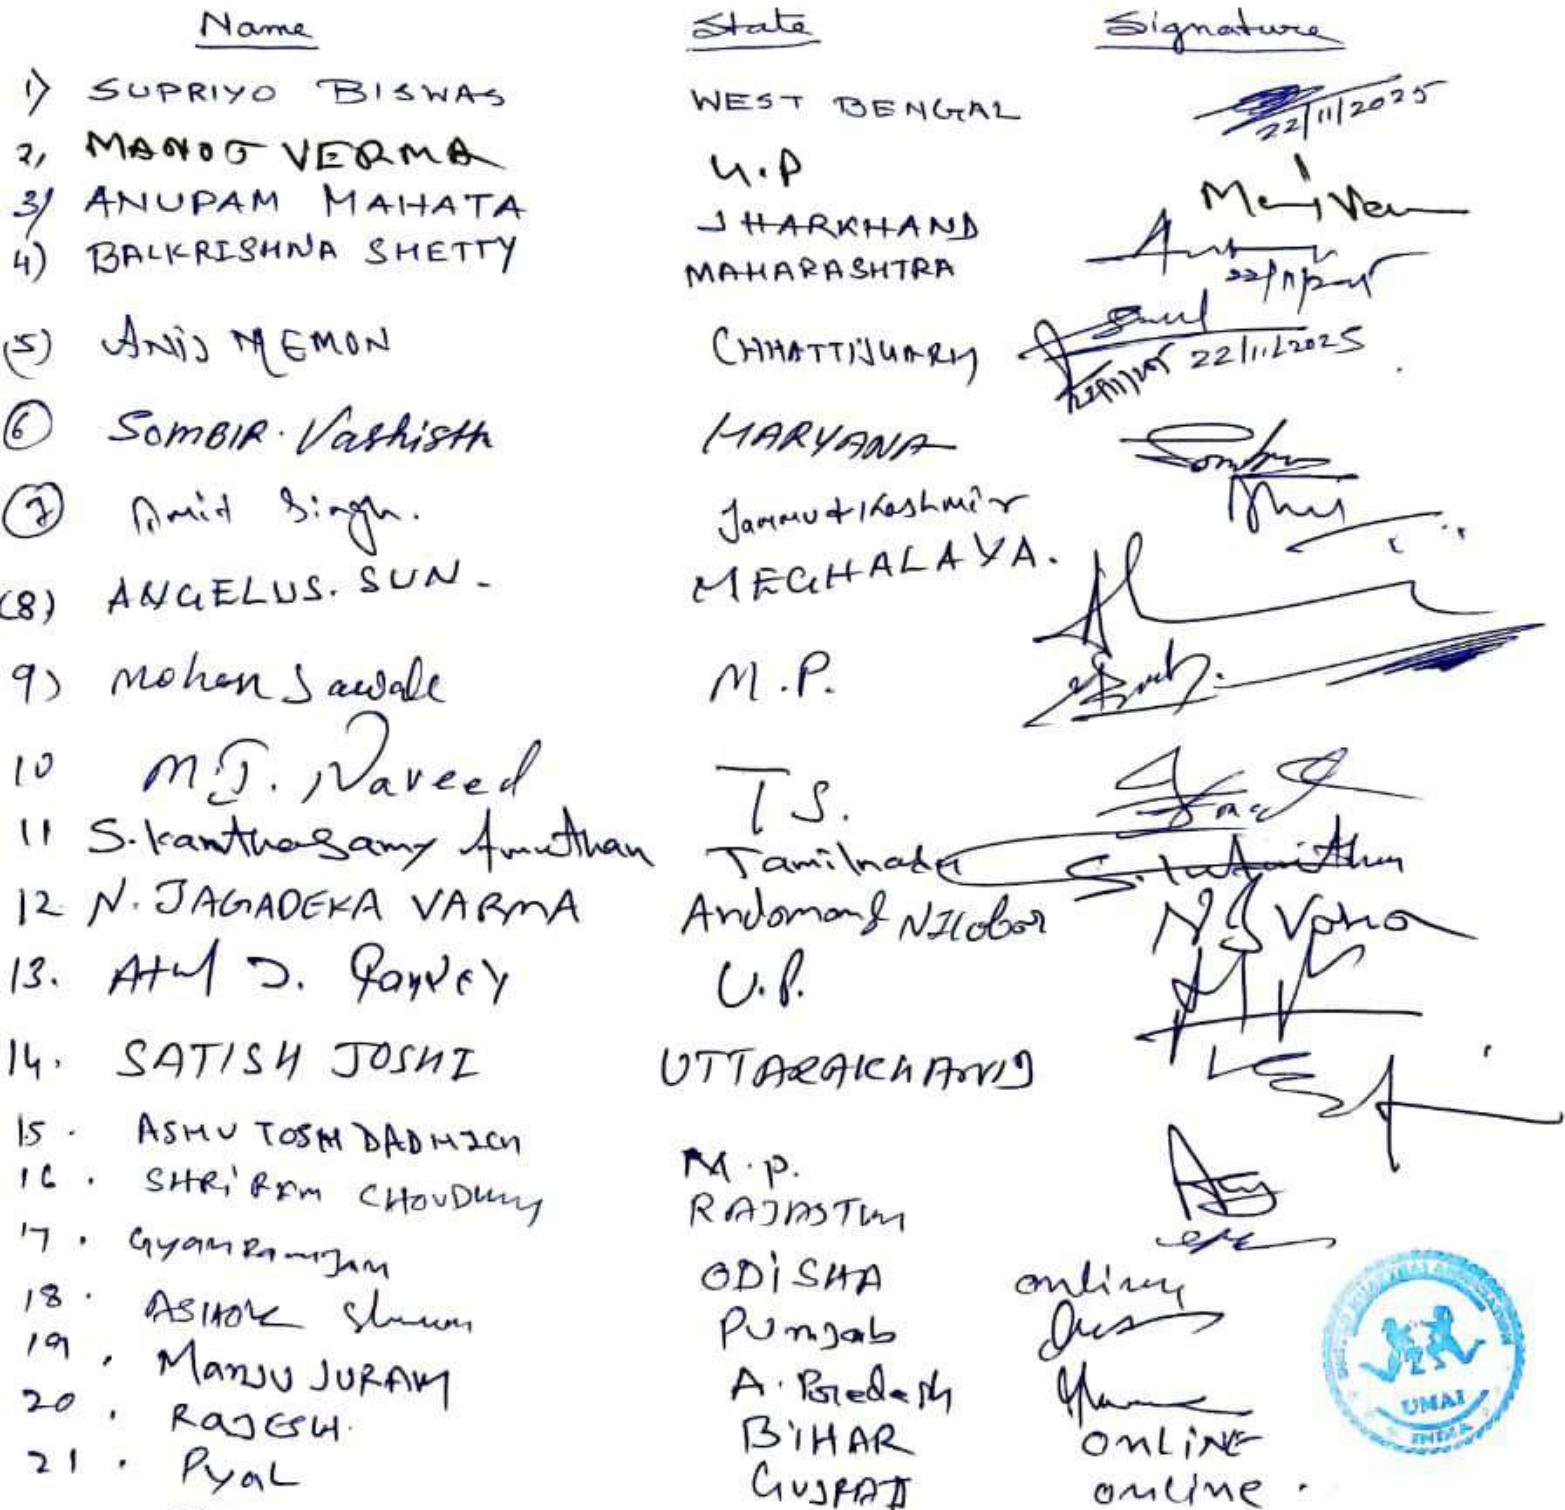 Name State Signature
1) SUPRIYO BISWAS WEST BENGAL 22/11/2025
2, MANOJ VERMA U.P
3) ANUPAM MAHATA JHARKHAND
4) BALKRISHNA SHETTY MAHARASHTRA
(5) ANIS MEMON CHHATTISGARH 22/11/2025
6 SOMBIR. Vashisth HARYANA
7 Amit Singh. Jammu & Kashmir
(8) ANGELUS. SUN- MEGHALAYA.
9) Mohan Sawale M.P.
10 M.J. Naveed TS.
11 S.kanthasamy Amuthan Tamilnadu
12 N. JAGADEKA VARMA Andaman & Nicobar N J Varma
13. Atul J. Pandey U.P.
14. SATISH JOSHI UTTARAKHAND
15. ASHUTOSH DADHICH M.P.
16. SHRI RAM CHOUDHARY RAJASTHAN
17. Gyanranjan ODISHA online
18. ASHOK Punjab
19. Manju JURAM A. Pradesh
20. RAJESH. BIHAR ONLINE
21. Pyal GUJRAT online.
UMAI
INDIA